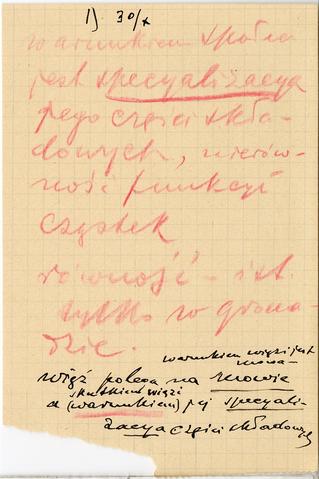 1) 30/x
warunkiem społeń
jest specyalizacya
jego części skła-
dowych, nierów-
ność funkcyi
cząstek
równość – ist.
tylko w groma-
dzie.
warunkiem więzi jest
mowa
więź polega na mowie
skutkiem więzi
a (warunkiem) jej specyali-
zacya części składowych